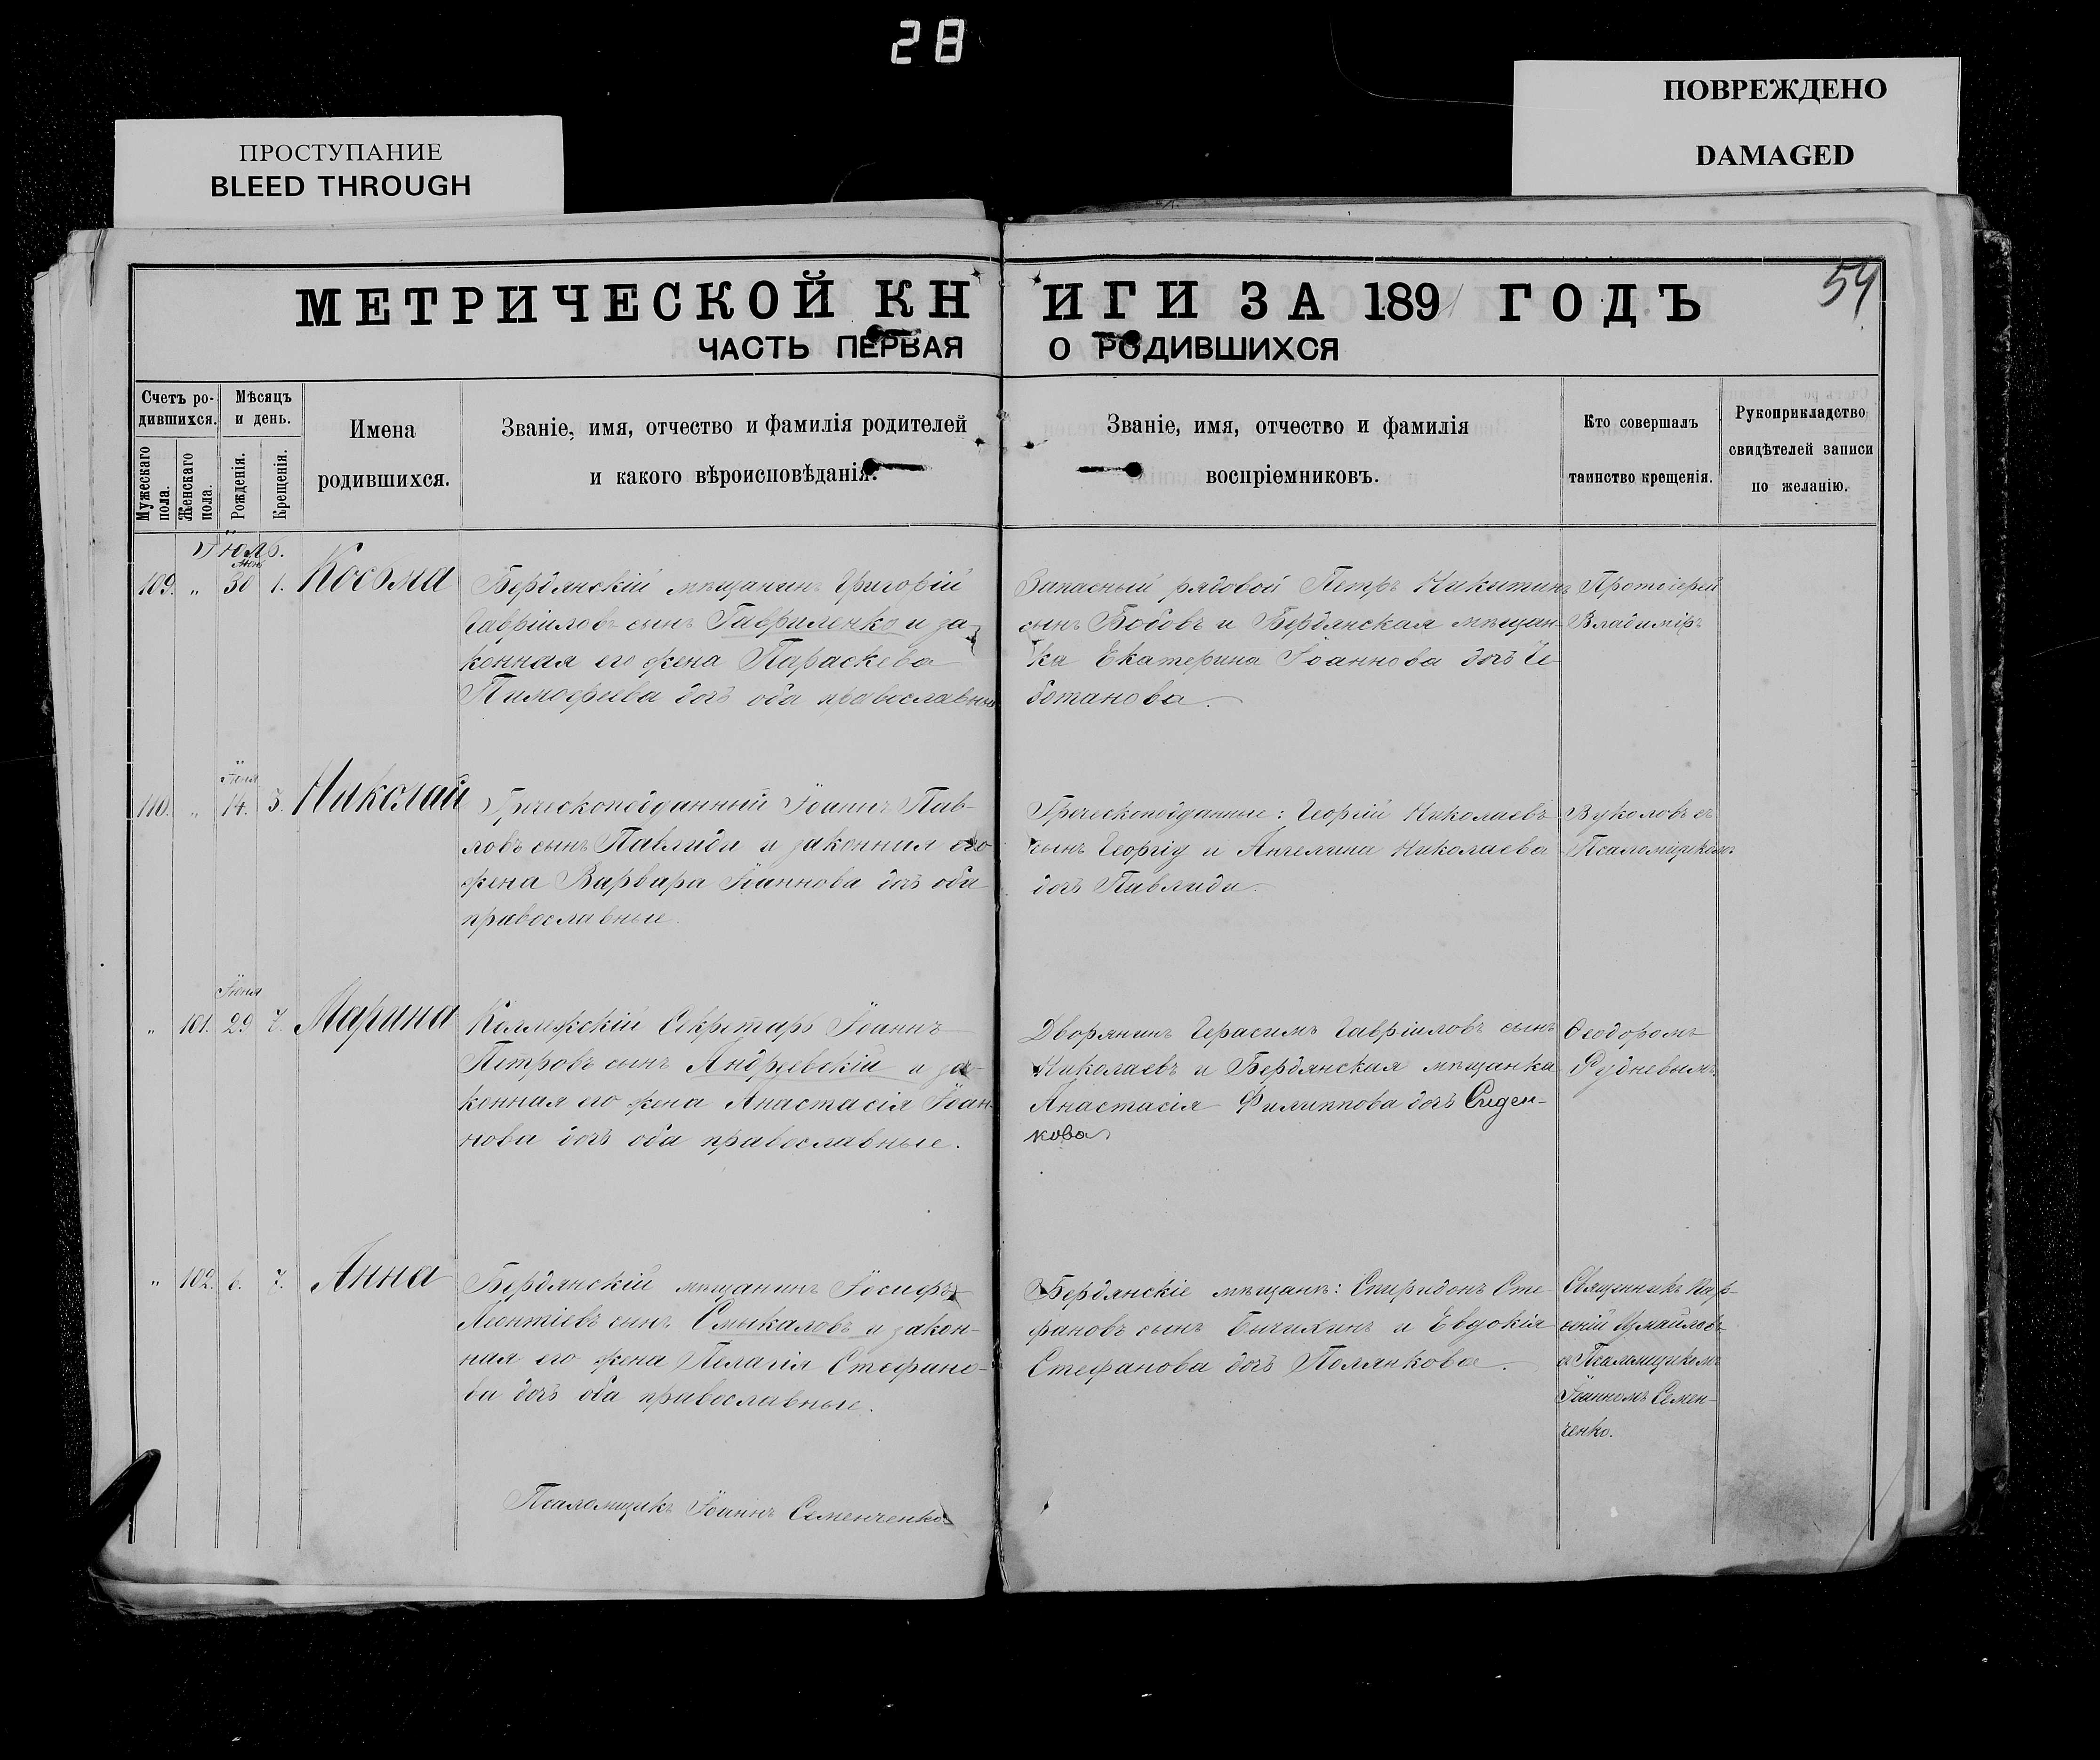 28
ПРОСТУПАНИЕ
BLEED THROUGH
ПОВРЕЖДЕНО
DAMAGED
54
МЕТРИЧЕСКОЙ КНИГИ ЗА 1891 ГОДЪ
ЧАСТЬ ПЕРВАЯ О РОДИВШИХСЯ
Счетъ ро-
дившихся.
Мужескаго пола.
Женскаго пола.
Мѣсяцъ
и день.
Рожденія.
Крещенія.
Имена
родившихся.
Званіе, имя, отчество и фамилія родителей
и какого вѣроисповѣданія.
Званіе, имя, отчество и фамилія
воспріемниковъ.
Кто совершалъ
таинство крещенія.
Рукоприкладство
свидѣтелей записи
по желанію.
Іюль.
109. " 30 1. Косма
Бердянскій мѣщанинъ Григорій
Гавріиловъ сынъ Гавриленко и за-
конная его жена Параскева
Тимофеева дочь оба православные
Запасный рядовой Петръ Никитинъ
сынъ Бобовъ и Бердянская мѣщан-
ка Екатерина Іоаннова дочь Че-
ботанова.
Протоіерей
Владиміръ
Іюня
110. " 14. 3. Николай
Греческоподданный Іоаннъ Пав-
ловъ сынъ Павлиди и законная его
жена Варвара Іоаннова дочь оба
православные.
Греческоподданные: Георгій Николаевъ
сынъ Георгіу и Ангелина Николаева
дочь Павлиди.
Вуколовъ съ
Псаломщикомъ
Іюня
" 101. 29 7. Марина
Коллежскій Секретарь Іоаннъ
Петровъ сынъ Андреевскій и за-
конная его жена Анастасія Іоан-
нова дочь оба православные.
Дворянинъ Герасимъ Гавріиловъ сынъ
Николаевъ и Бердянская мѣщанка
Анастасія Филиппова дочь Сиден-
кова
Ѳеодоромъ
Рудневымъ.
" 102. 6. 7. Анна
Бердянскій мѣщанинъ Іосифъ
Леонтіевъ сынъ Смыкаловъ и закон-
ная его жена Пелагія Стефано-
ва дочь оба православные.
Бердянскіе мѣщане: Спиридонъ Сте-
фановъ сынъ Бычихинъ и Евдокія
Стефанова дочь Полянкова.
Священникъ Пар-
ѳеній Измайловъ
съ Псаломщикомъ
Іоанномъ Семен-
ченко.
Псаломщикъ Іоаннъ Семенченко